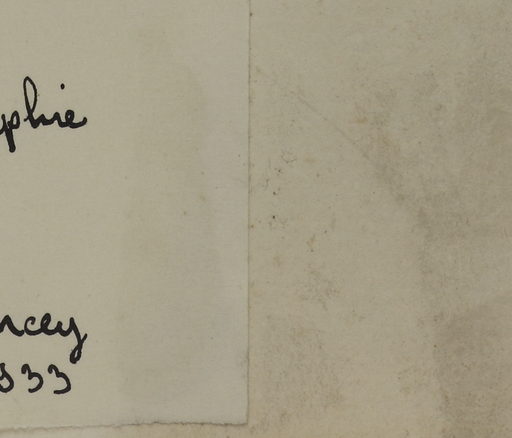 yphie
ncey
933